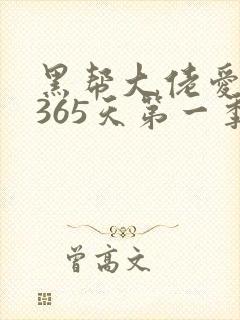 黑帮大佬爱
365天第一季
曾高文